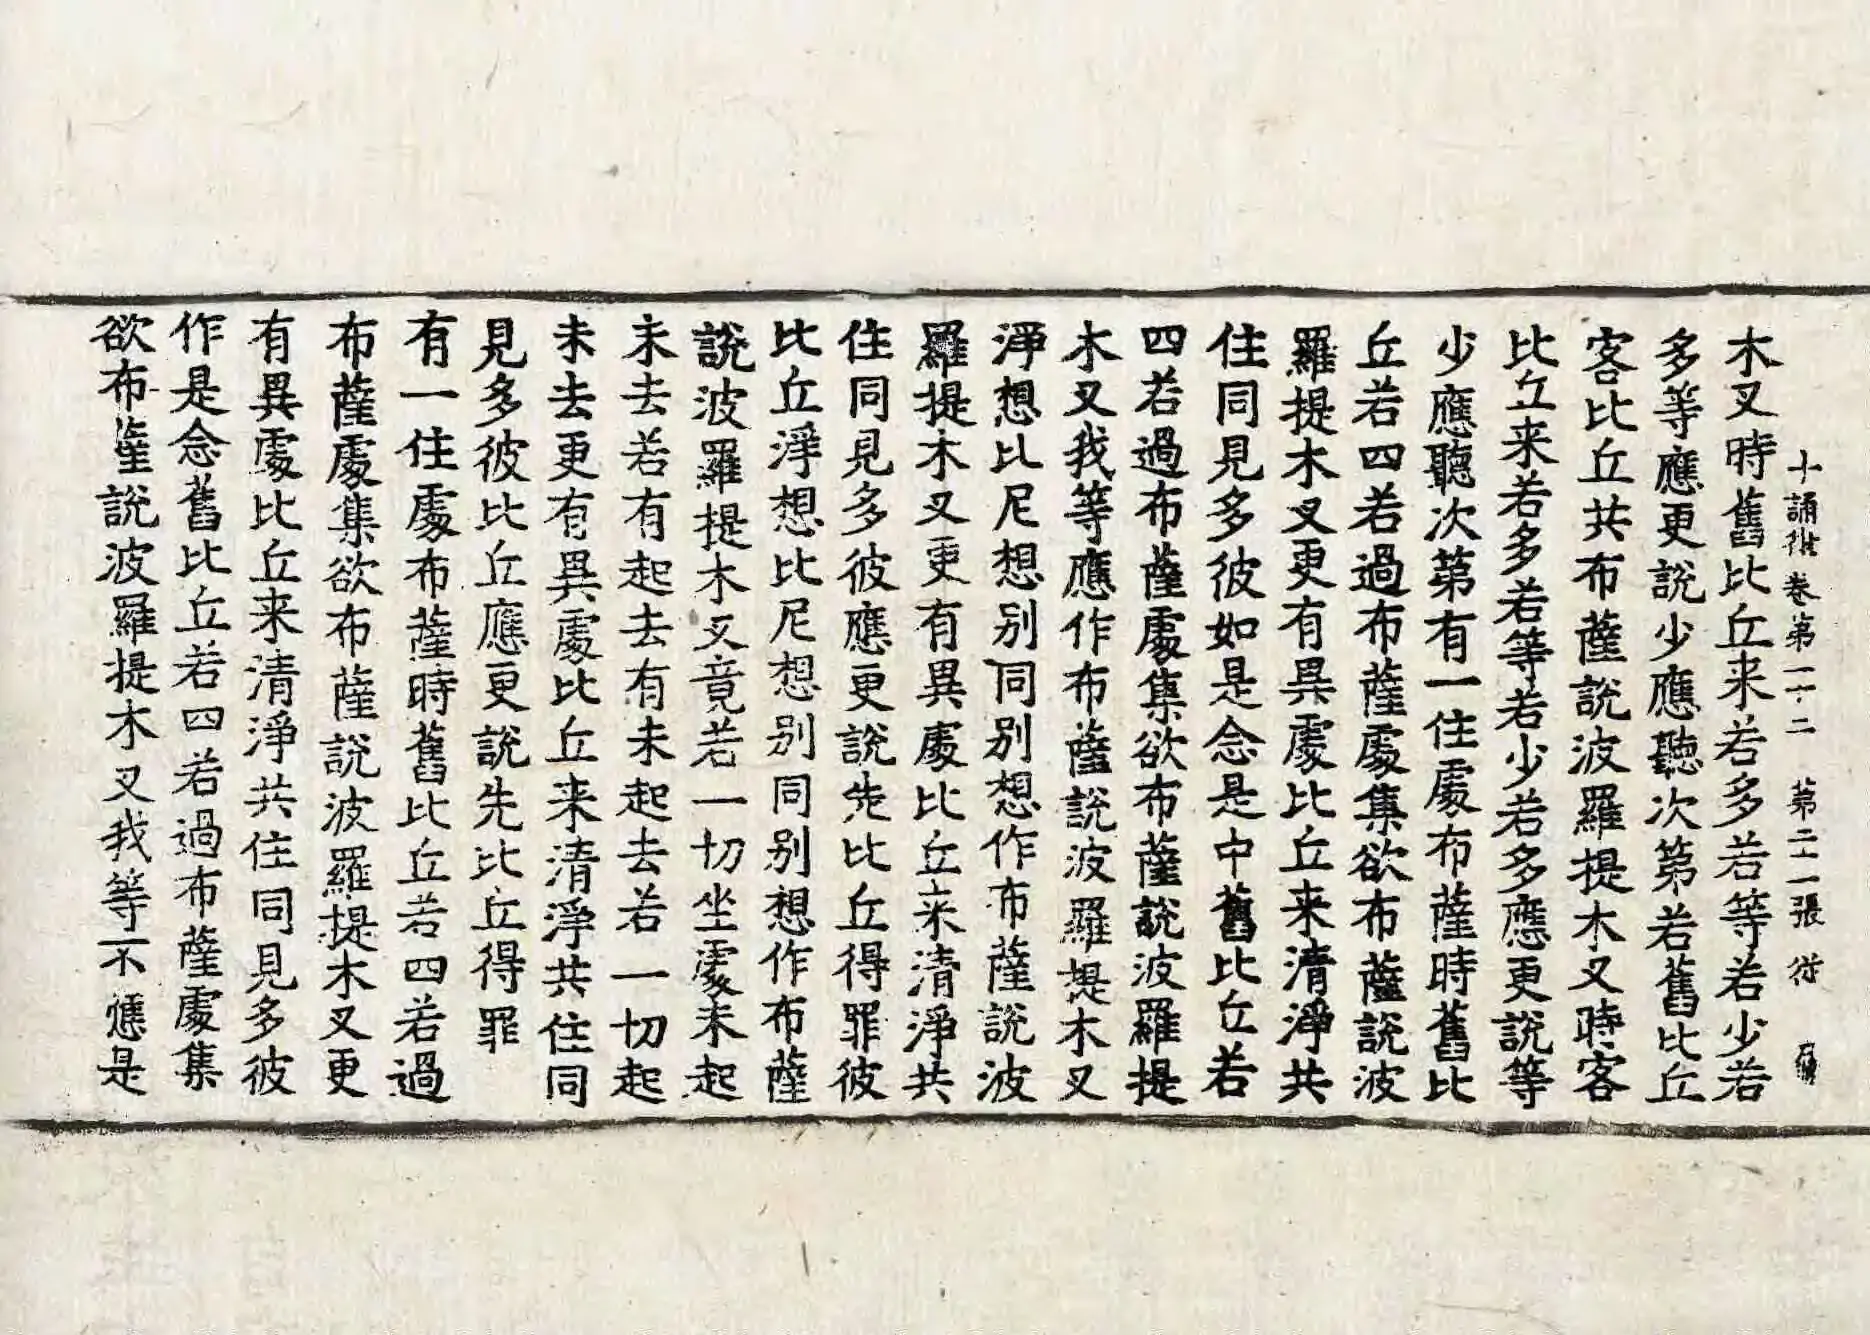 十誦律卷第二十二 第二十一張 從
木叉時舊比丘来若多若等若少若
多等應更說少應聽次第若舊比丘
客比丘共布薩說波羅提木叉時客
比丘来若多若等若少若多應更說等
少應聽次第有一住處布薩時舊比
丘若四若過布薩處集欲布薩說波
羅提木叉更有異處比丘来清淨共
住同見多彼如是念是中舊比丘若
四若過布薩處集欲布薩說波羅提
木叉我等應作布薩說波羅提木叉
淨想比尼想別同別想作布薩說波
羅提木叉更有異處比丘来清淨共
住同見多彼應更說先比丘得罪彼
比丘淨想比尼想別同別想作布薩
說波羅提木叉竟若一切坐處未起
未去若有起去有未起去若一切起
未去更有異處比丘来清淨共住同
見多彼比丘應更說先比丘得罪
有一住處布薩時舊比丘若四若過
布薩處集欲布薩說波羅提木叉更
有異處比丘来清淨共住同見多彼
作是念舊比丘若四若過布薩處集
欲布薩說波羅提木叉我等不應是